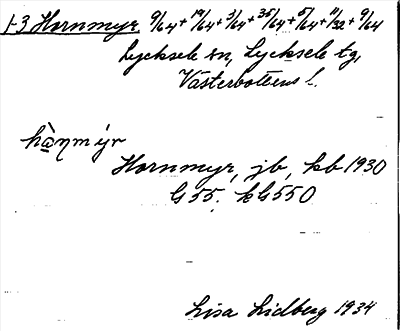 1-3 Hornmyr 9/64 + 19/64 + 3/64 + 35/64 + 5/64 + 11/32 + 9/64
Lycksele sn, Lycksele tg,
Västerbottens l.
hànmýr
Hornmyr, jb, kb 1930
G 55. kG550
Lisa Lidberg 1934